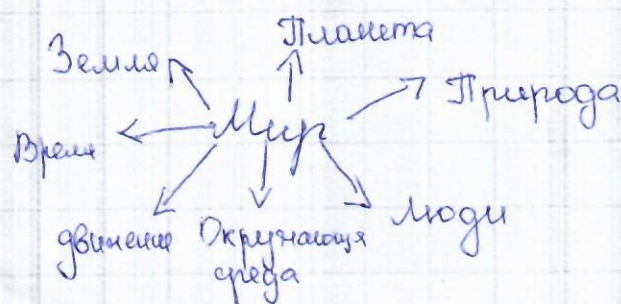 Планета
Земля
Природа
Мир
Время
Люди
движение Окружающая
среда